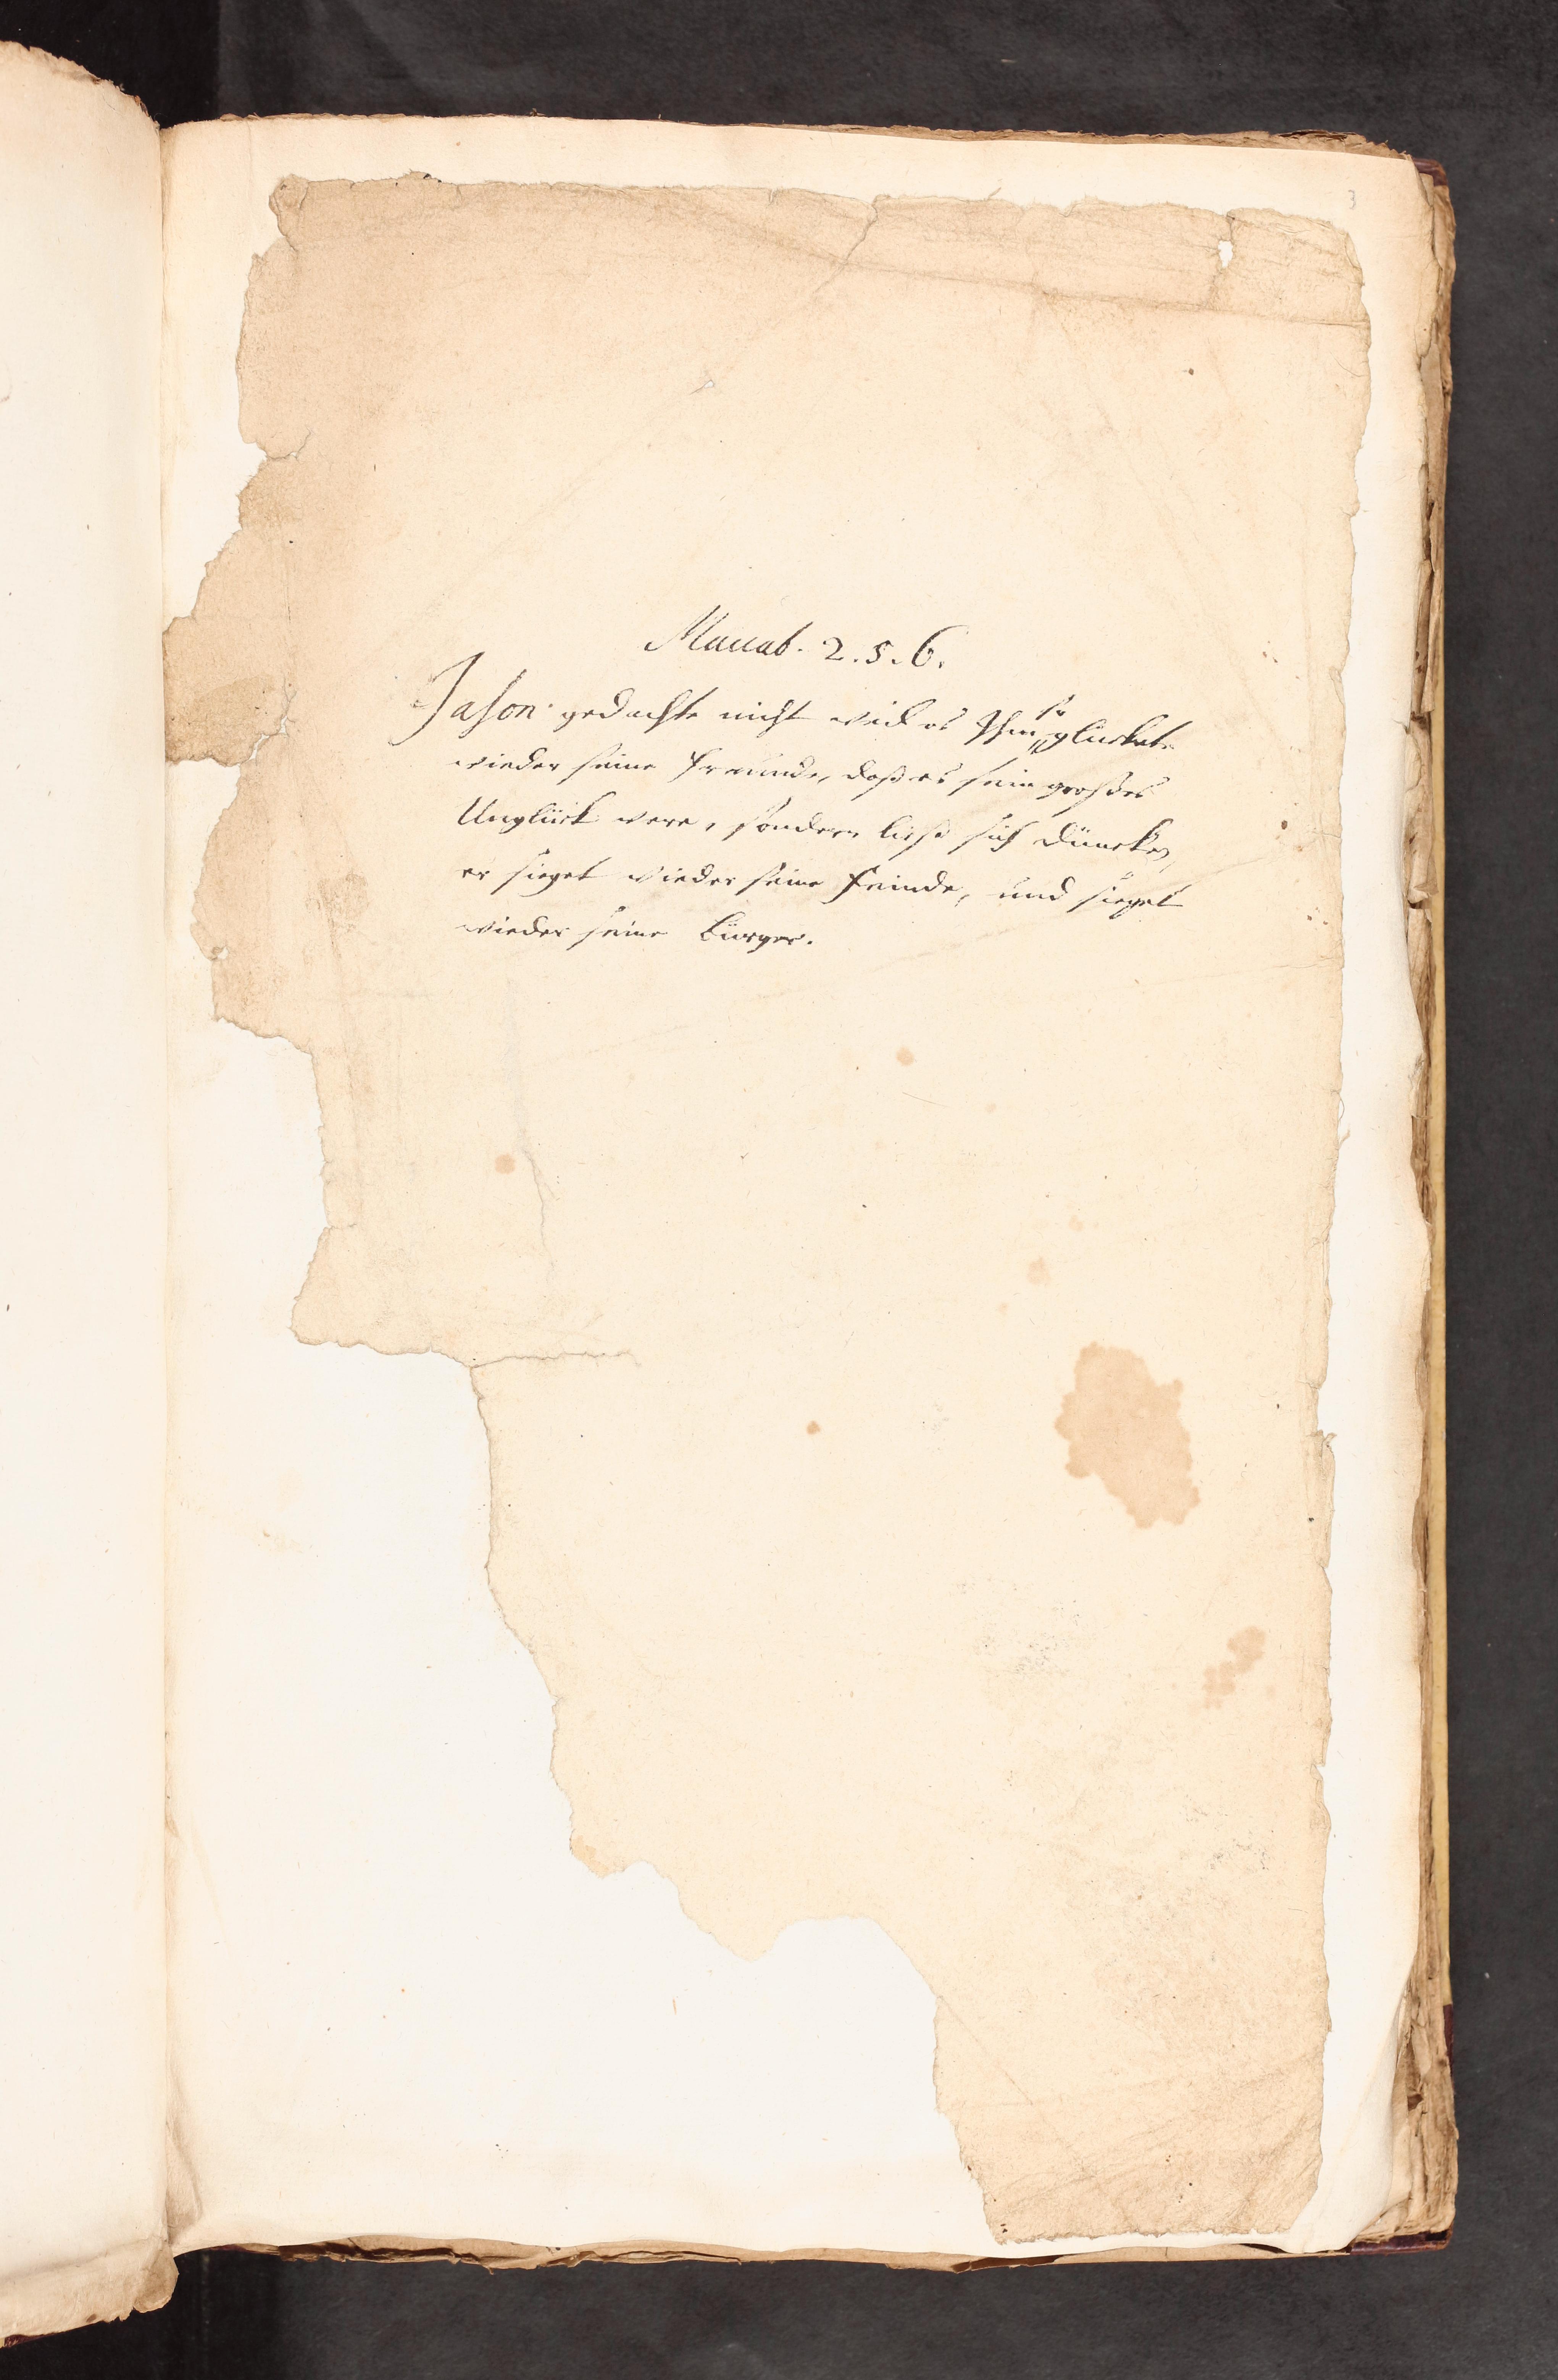 3
Maccab. 2. 5. 6.
so
Jason gedachte nicht weil es Ihm gluckete
wieder seine Freunde, daß es sein großes
Unglück were, sondern ließ sich düncken,
er sieget wieder seine Feinde, und sieget
wieder seine Bürger.